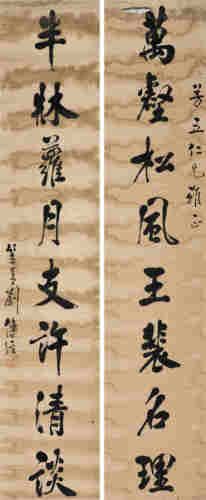 芳五仁兄雅正
萬壑松風王裴名理
半牀蘿月支許清談